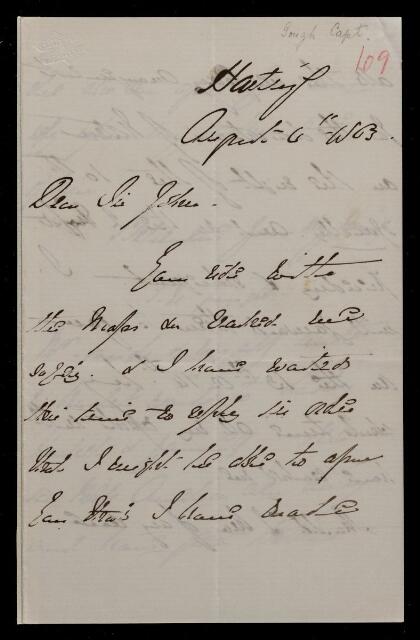 Gough Capt.
109
August 6th 1863
Dear Sir John.
Your note with
the Maps &c reached me
safely. & I have waited
this time to reply in order
that I might be able to assure
you that I have made